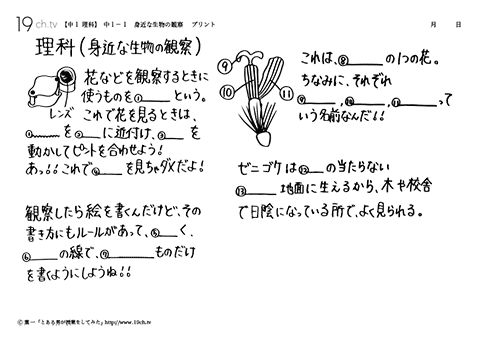 19 ch.tv 【中1 理科】 中1-1 身近な生物の観察 プリント 月 日
理科(身近な生物の観察)
レンズ
花などを観察するときに
使うものを①____という。
これで花を見るときは、
①____を②____に近付け、③____を
動かしてピントを合わせよう!
あっ!!これで④____を見ちゃダメだよ!
観察したら絵を書くんだけど、その
書き方にもルールがあって、⑤____く、
⑥____の線で、⑦____ものだけ
を書くようにしようね!!
⑨
⑩
⑪
これは、⑧____の1つの花。
ちなみに、それぞれ
⑨____,⑩____,⑪____って
いう名前なんだ!!
ゼニゴケは⑫____の当たらない
⑬____地面に生えるから、木や校舎
で日陰になっている所で、よく見られる。
©葉一「とある男が授業をしてみた」http://www.19ch.tv